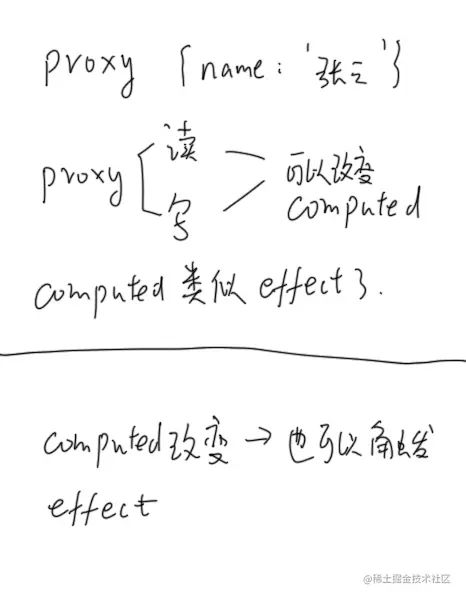 proxy {name: '张三'}
读
proxy
写
可以改变
computed
computed 类似 effect了.
computed改变 → 也可以触发
effect
@稀土掘金技术社区